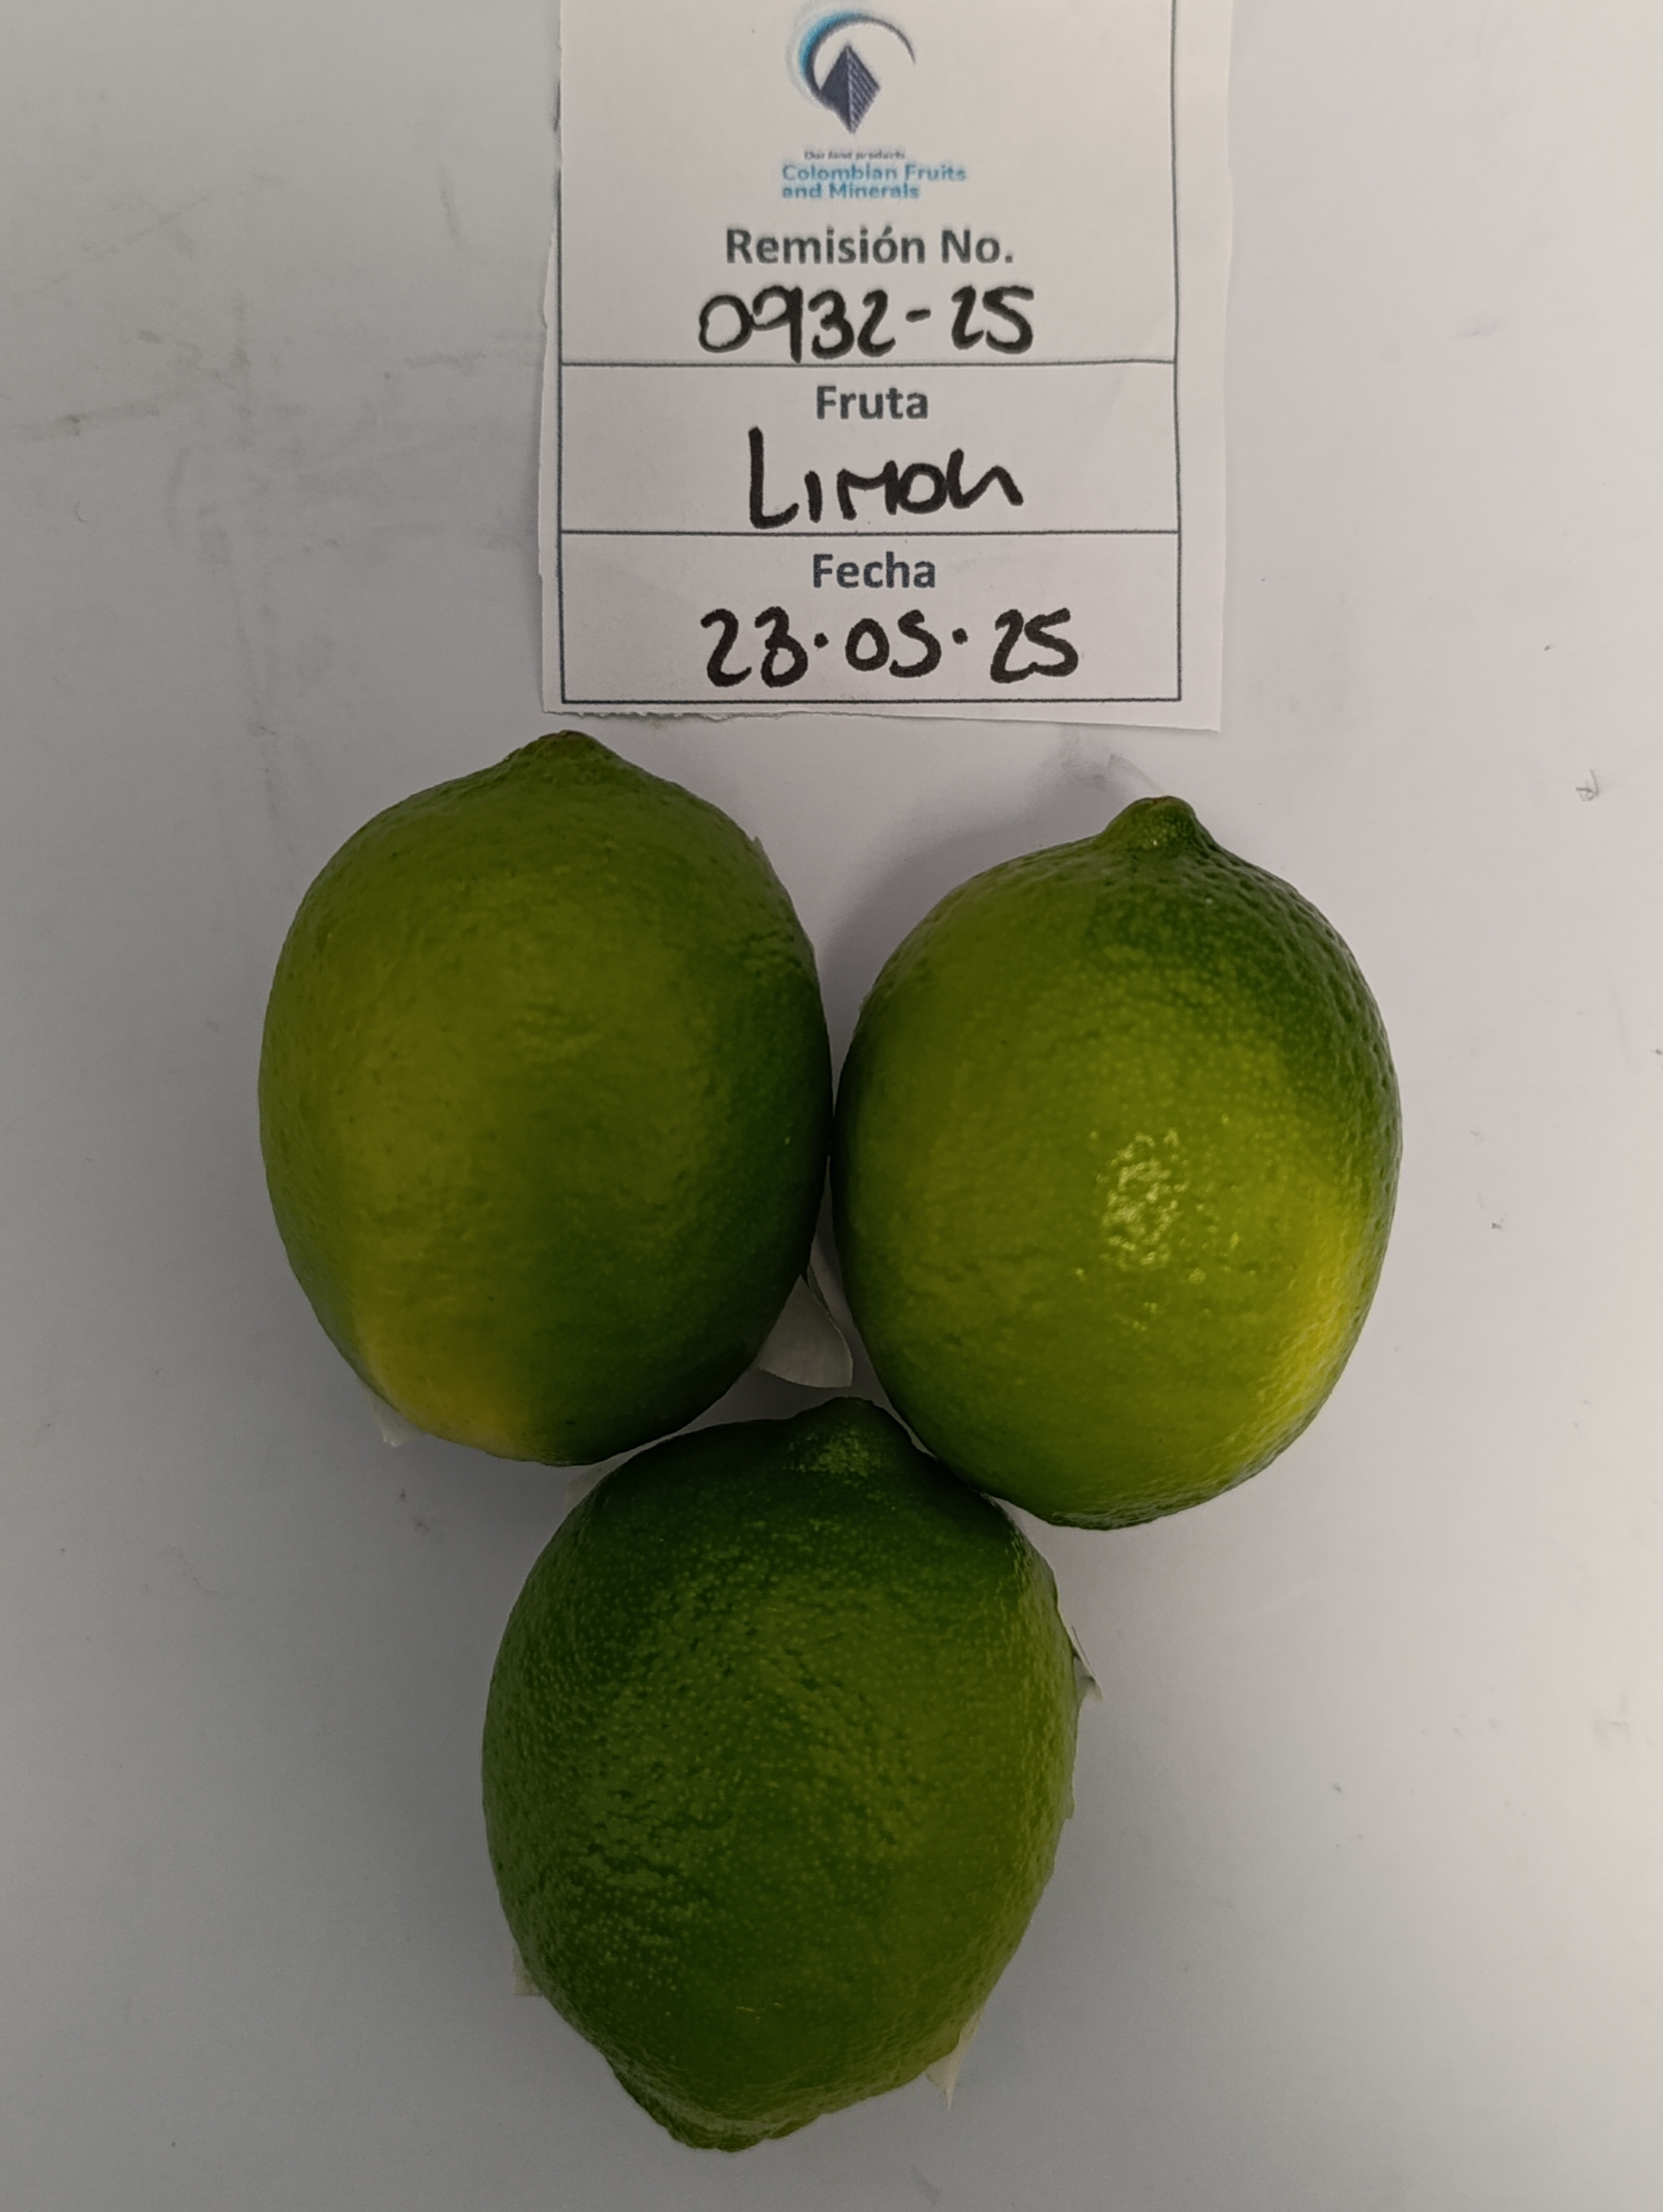 Our land products
Colombian Fruits
and Minerals
Remisión No.
0932-25
Fruta
Limon
Fecha
28.05.25